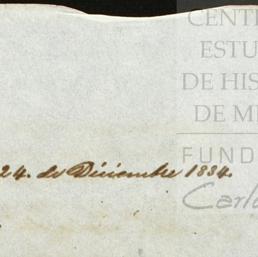 CENT
ESTU
DE HIS
DE M
FUND
Carl
24. de Diciembre 1834.